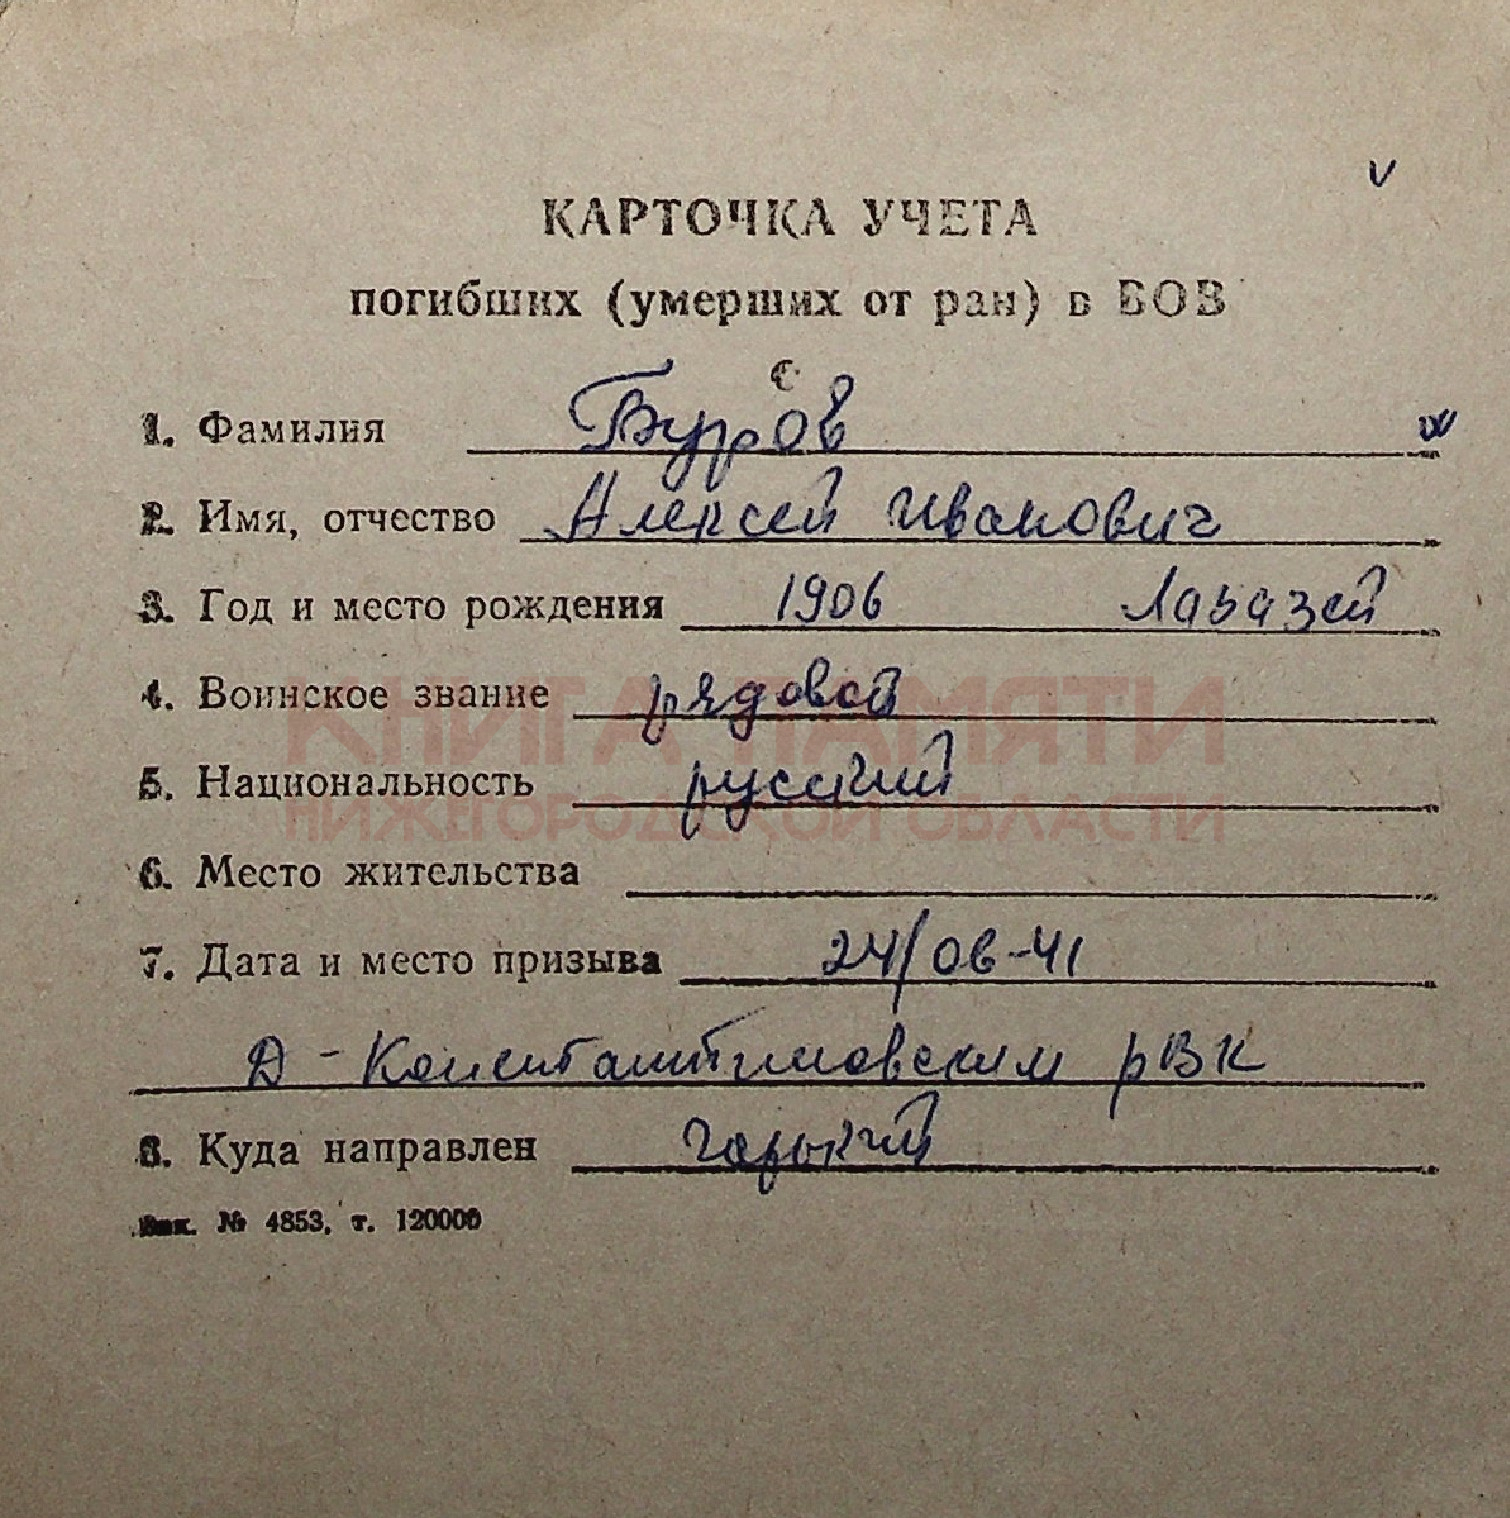 v
КАРТОЧКА УЧЕТА
погибших (умерших от ран) в ВОВ
1. Фамилия Буров
2. Имя, отчество Алексей Иванович
3. Год и место рождения 1906 Лабазей
4. Воинское звание рядовой
КНИГА ПАМЯТИ
5. Национальность русский
НИЖЕГОРОДСКОЙ ОБЛАСТИ
6. Место жительства
7. Дата и место призыва 24/06-41
Д-Константиновским рВК
8. Куда направлен Горький
Зак. № 4853, т. 120000